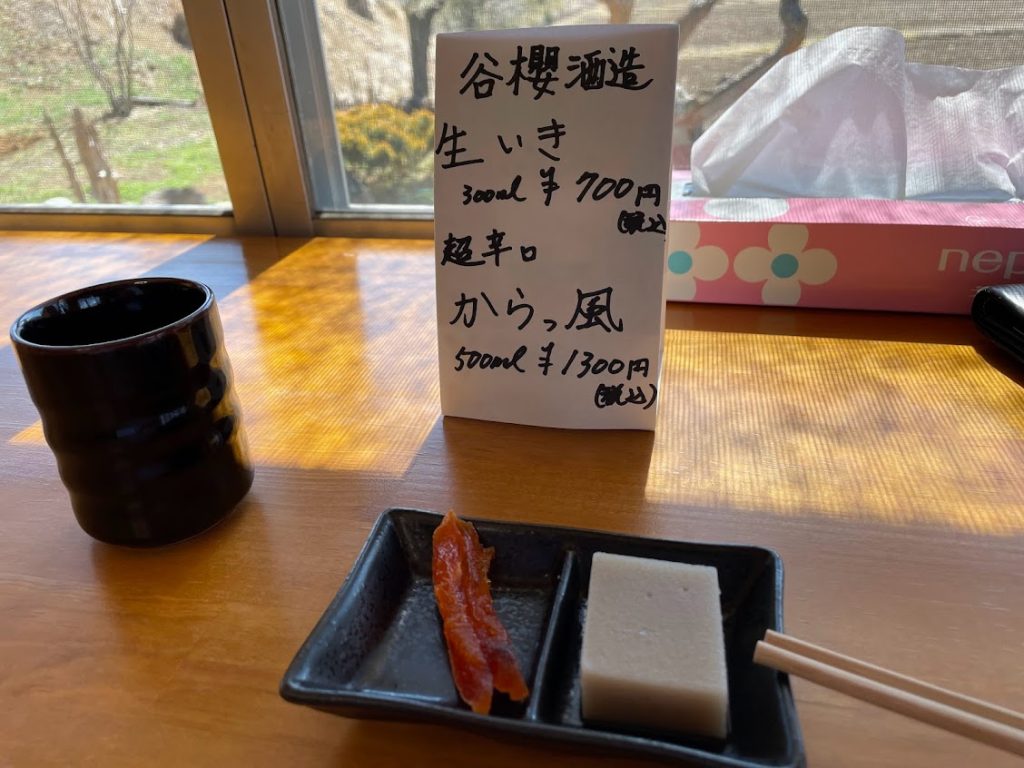 谷櫻酒造
生いき
300ml ¥700円
(税込)
超辛口
からっ風
500ml ¥1300円
(税込)
nep